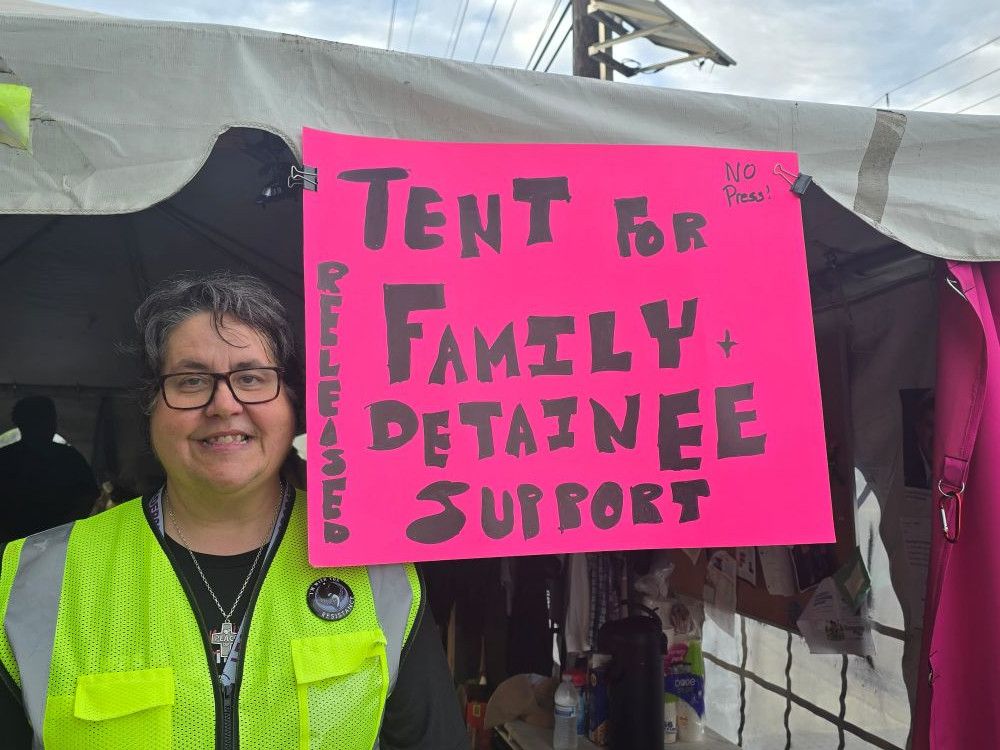 TENT FOR
NO
Press!
RELEASED
FAMILY +
DETAINEE
SUPPORT
RESISTANCE
PEACE